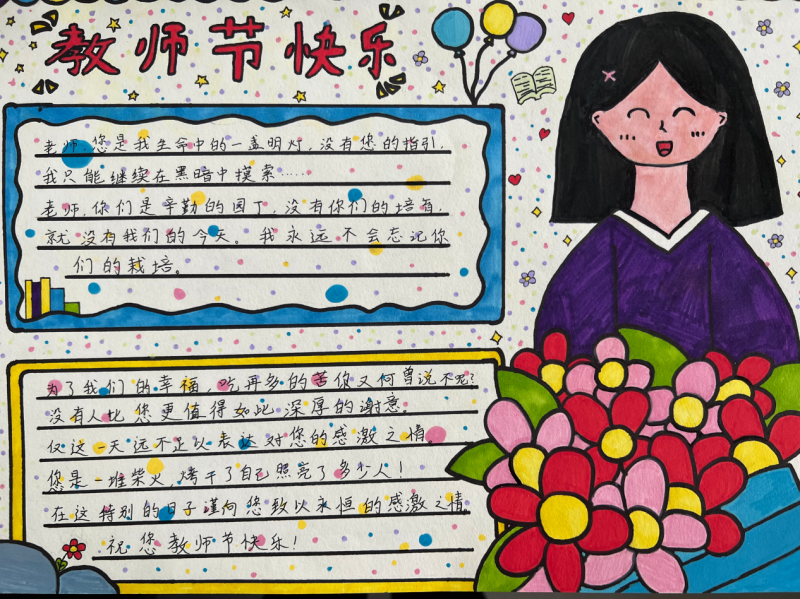 教师节快乐
老师,您是我生命中的一盏明灯,没有您的指引,
我只能继续在黑暗中摸索……
老师,你们是辛勤的园丁,没有你们的培育,
就没有我们的今天。我永远不会忘记你
们的栽培。
为了我们的幸福,吃再多的苦你又何曾说不呢?
没有人比您更值得如此深厚的谢意。
仅这一天远不足以表达对您的感激之情。
您是一堆柴火,烤干了自己照亮了多少人!
在这特别的日子谨向您致以永恒的感激之情,
祝您教师节快乐!